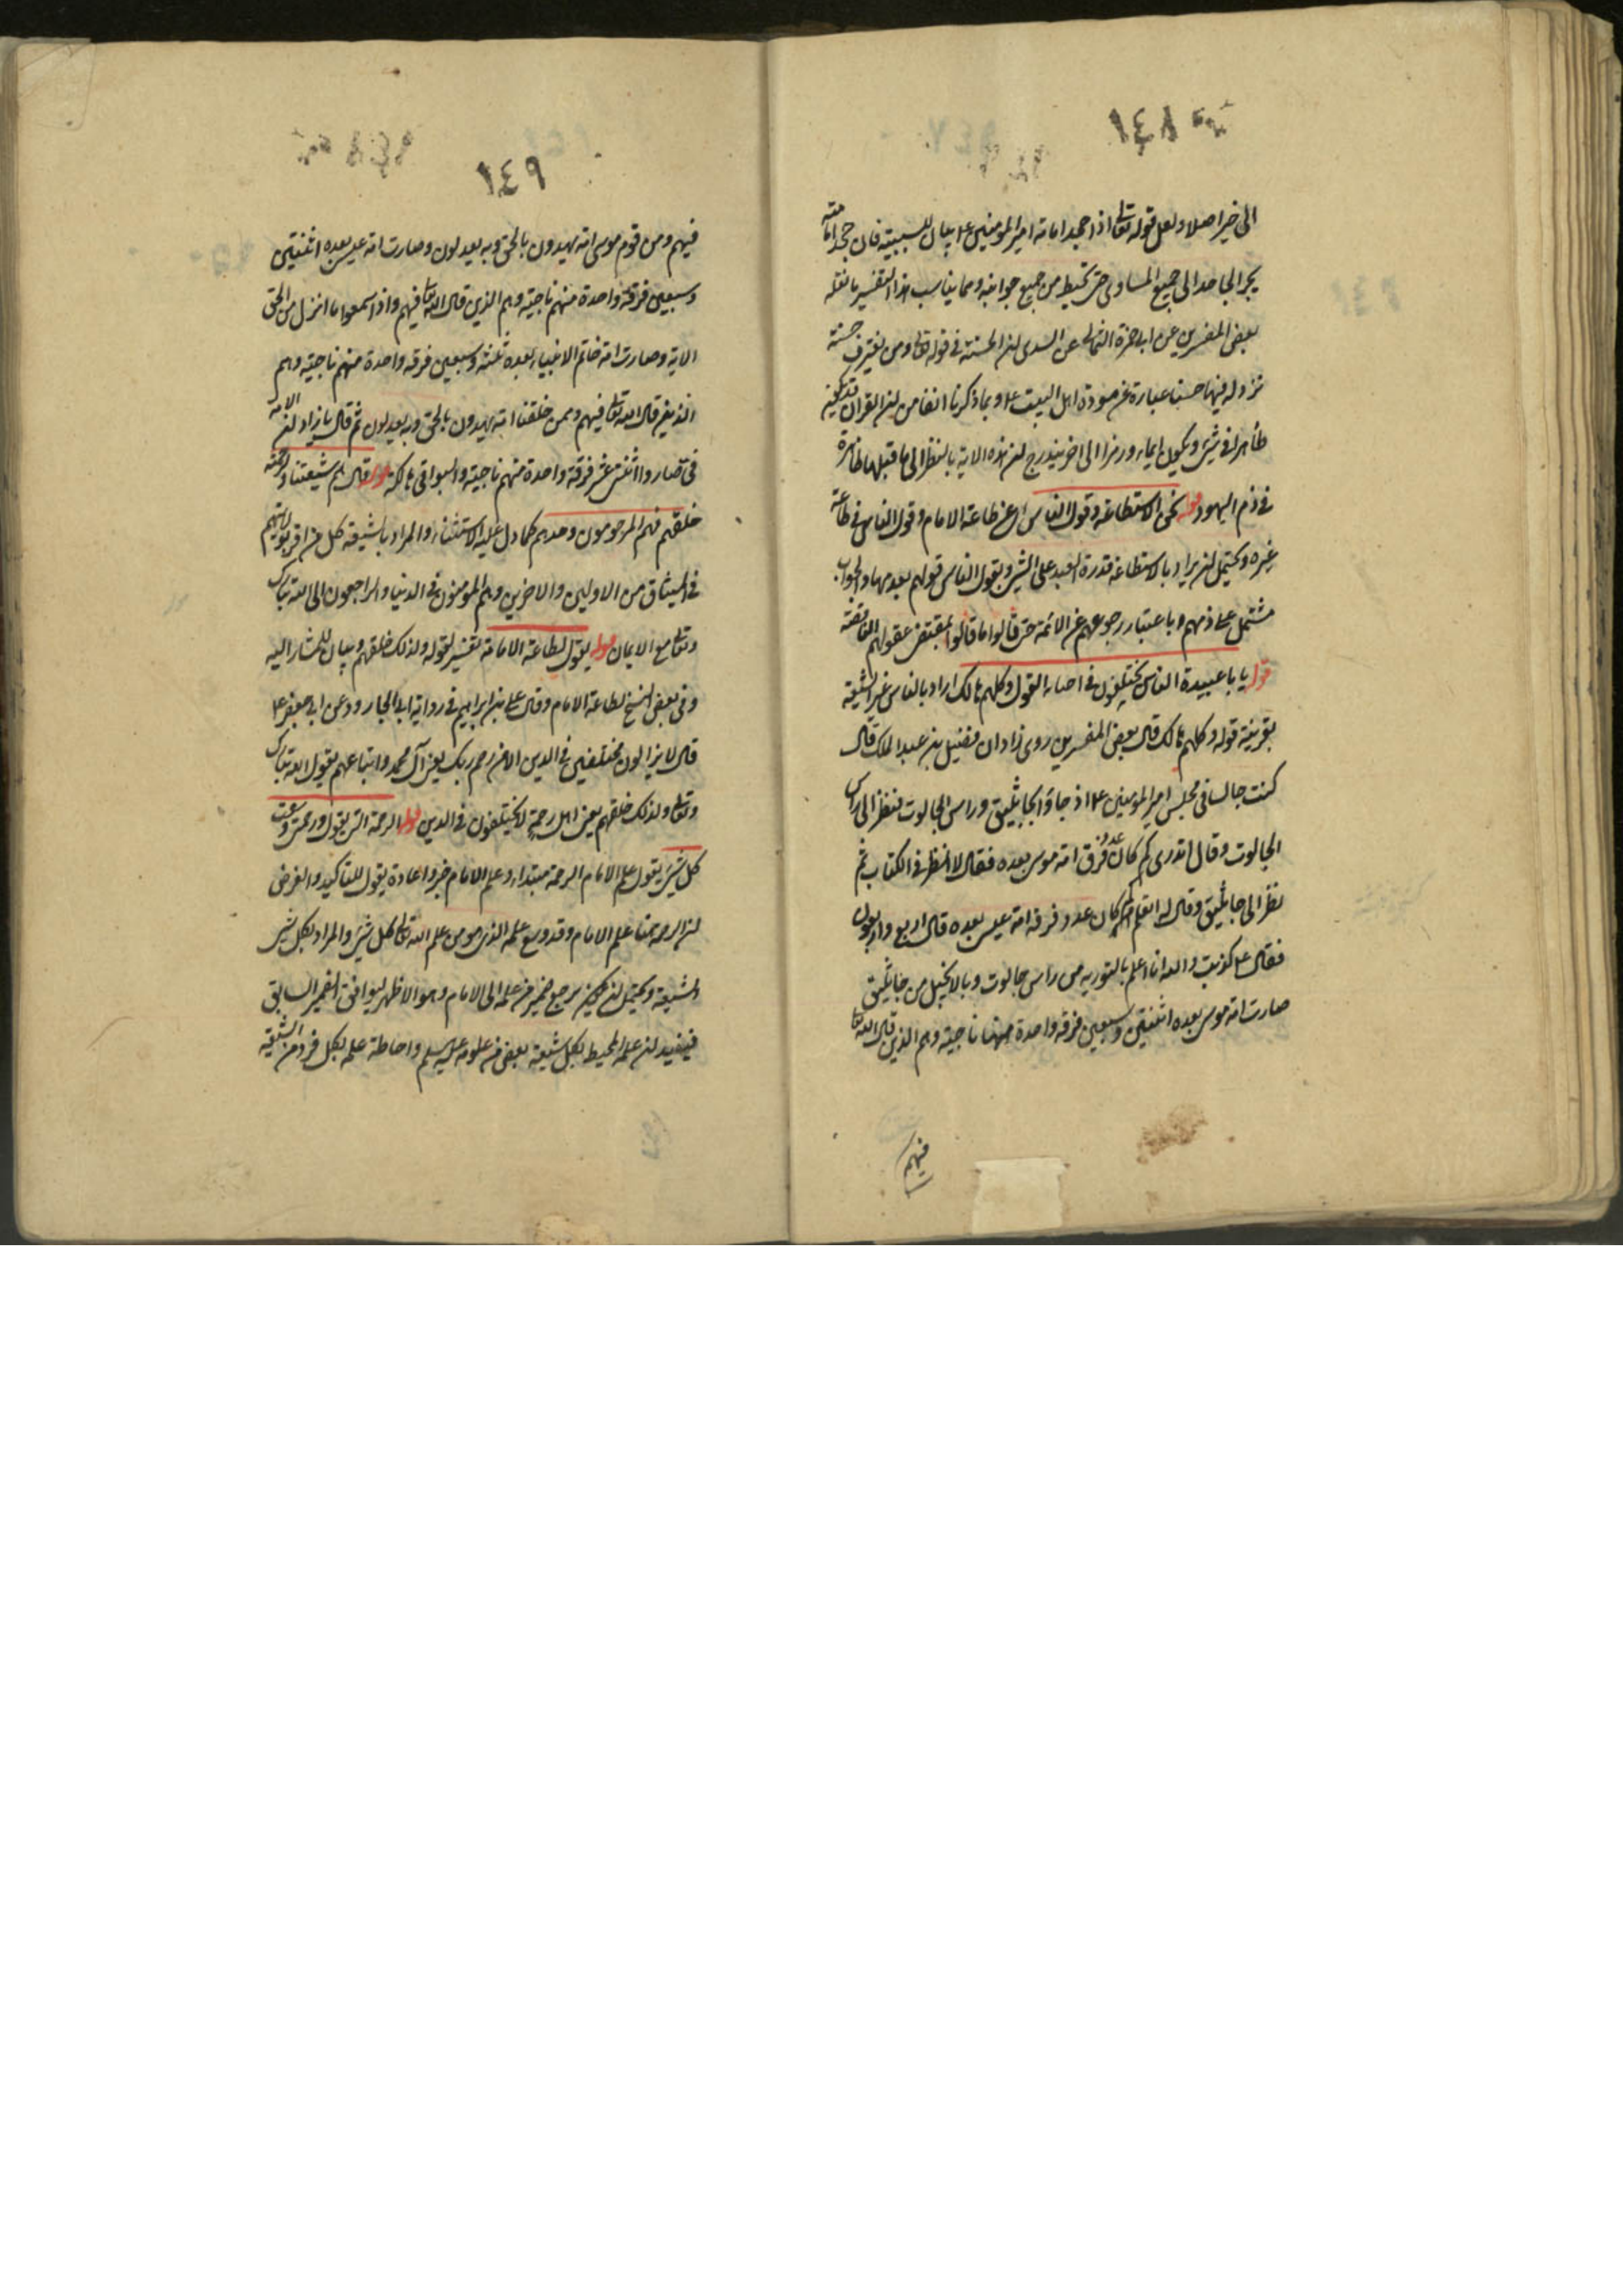 ١٤٨
الى خير اصلا ولعل قوله تعالى اذا جحد امامة امير المؤمنين ع بيان للسببية فان جحد امامته
يجر الجاحد الى جميع المساوى حتى تحيط من جميع جوانبه ومما يناسب هذا التفسير ما نقله
بعض المفسرين عن ابى حمزة الثمالى عن السدى ان الحسنة فى قوله تعالى ومن يقترف حسنة
نزد له فيها حسنا عبارة عن مودة اهل البيت ع وبما ذكرنا انفا من ان القران قد يكون
ظاهرا فى شىء ويكون ايماء ورمزا الى اخر يندرج ان هذه الاية بالنظر الى ما قبلها ظاهرة
فى ذم اليهود قوله عن الاستطاعة وقول الناس اى عن طاعة الامام وقول الناس فى طاعة
غيره ويحتمل ان يراد بالاستطاعة قدرة العبد على الشىء وبقول الناس قولهم بعدمها والجواب
مشتمل على ذمهم باعتبار رجوعهم عن الائمة حتى قالوا ما قالوا بمقتضى عقولهم الناقصة
قوله يا با عبيدة الناس يختلفون فى اصابة القول وكلهم هالك اراد بالناس غير الشيعة
بقرينة قوله وكلهم هالك قال بعض المفسرين روى زاذان فضيل بن عبد الملك قال
كنت جالسا فى مجلس امير المؤمنين ع اذ جاؤ الجاثليق وراس الجالوت فنظر الى راس
الجالوت وقال اتدرى كم كان عدد فرق امة موسى بعده فقال لا انظر فى الكتاب ثم
نظر الى جاثليق وقال له اتعلم انه كم كان عدد فرقه امة عيسى بعده قال اربع واربعون
فقال ع كذبت والله انا اعلم بالتورية من راس جالوت وبالانجيل من جاثليق
صارت امة موسى بعده اثنتين وسبعين فرقه واحدة منها ناجية وهم الذين قال الله تعالى
فيهم
١٤٩
فيهم ومن قوم موسى امة يهدون بالحق وبه يعدلون وصارت امة عيسى بعده اثنتين
وسبعين فرقة واحدة منهم ناجية وهم الذين قال الله تعالى فيهم واذا سمعوا ما انزل من الحق
الاية وصارت امة خاتم الانبياء بعده ثلثة وسبعين فرقه واحدة منهم ناجية وهم
الذين قال الله تعالى فيهم وممن خلقنا امة يهدون بالحق وبه يعدلون ثم قال يا زاذان ان الامة
فى صاروا اثنى عشر فرقة واحدة منهم ناجية والبواقى هالكة قوله قال هم شيعتنا ولرحمته
خلقهم فهم المرحومون وحدهم كما دل عليه الاستثناء والمراد بالشيعة كل من اقر بولايتهم
فى الميثاق من الاولين والاخرين وهم المؤمنون فى الدنيا والراجعون الى الله تبارك
وتعالى مع الايمان قوله يقول لطاعة الامامة تفسير لقوله ولذلك خلقهم وبيان للمشار اليه
وفى بعض النسخ لطاعة الامام وقال على بن ابراهيم فى رواية ابى الجارود عن ابى جعفر ع
قال لا يزالون مختلفين فى الدين الا من رحم ربك يعنى آل محمد واتباعهم يقول الله تبارك
وتعالى ولذلك خلقهم يعنى اهل رحمة لا يختلفون فى الدين قوله الرحمة التى يقول ورحمتى وسعت
كل شىء يقول علم الامام الرحمة مبتداء وعلم الامام خبر واعادة يقول للتاكيد والغرض
ان الرحمة هنا علم الامام وقد وسع علمه الذى هو من علم الله تعالى كل شىء والمراد بكل شىء
الشيعة ويحتمل ان يكون مرجع ضمير من علمه الى الامام وهو الاظهر ليوافق الضمير السابق
فيفيد ان علمه المحيط بكل شيعة بعض من علومه عليه السلم واحاطة علمه بكل فرد من الشيعة